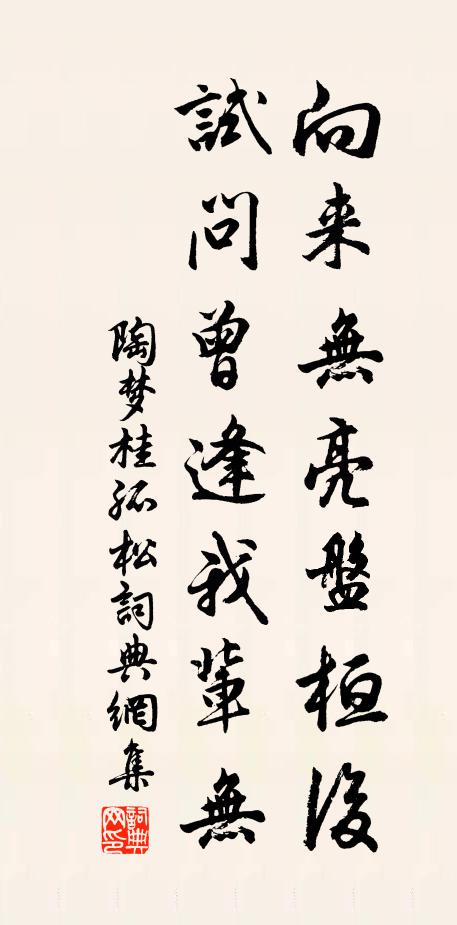 向来無亮盤桓後
試問曾逢我輩無
陶梦桂孤松詞典網集
詞典网印